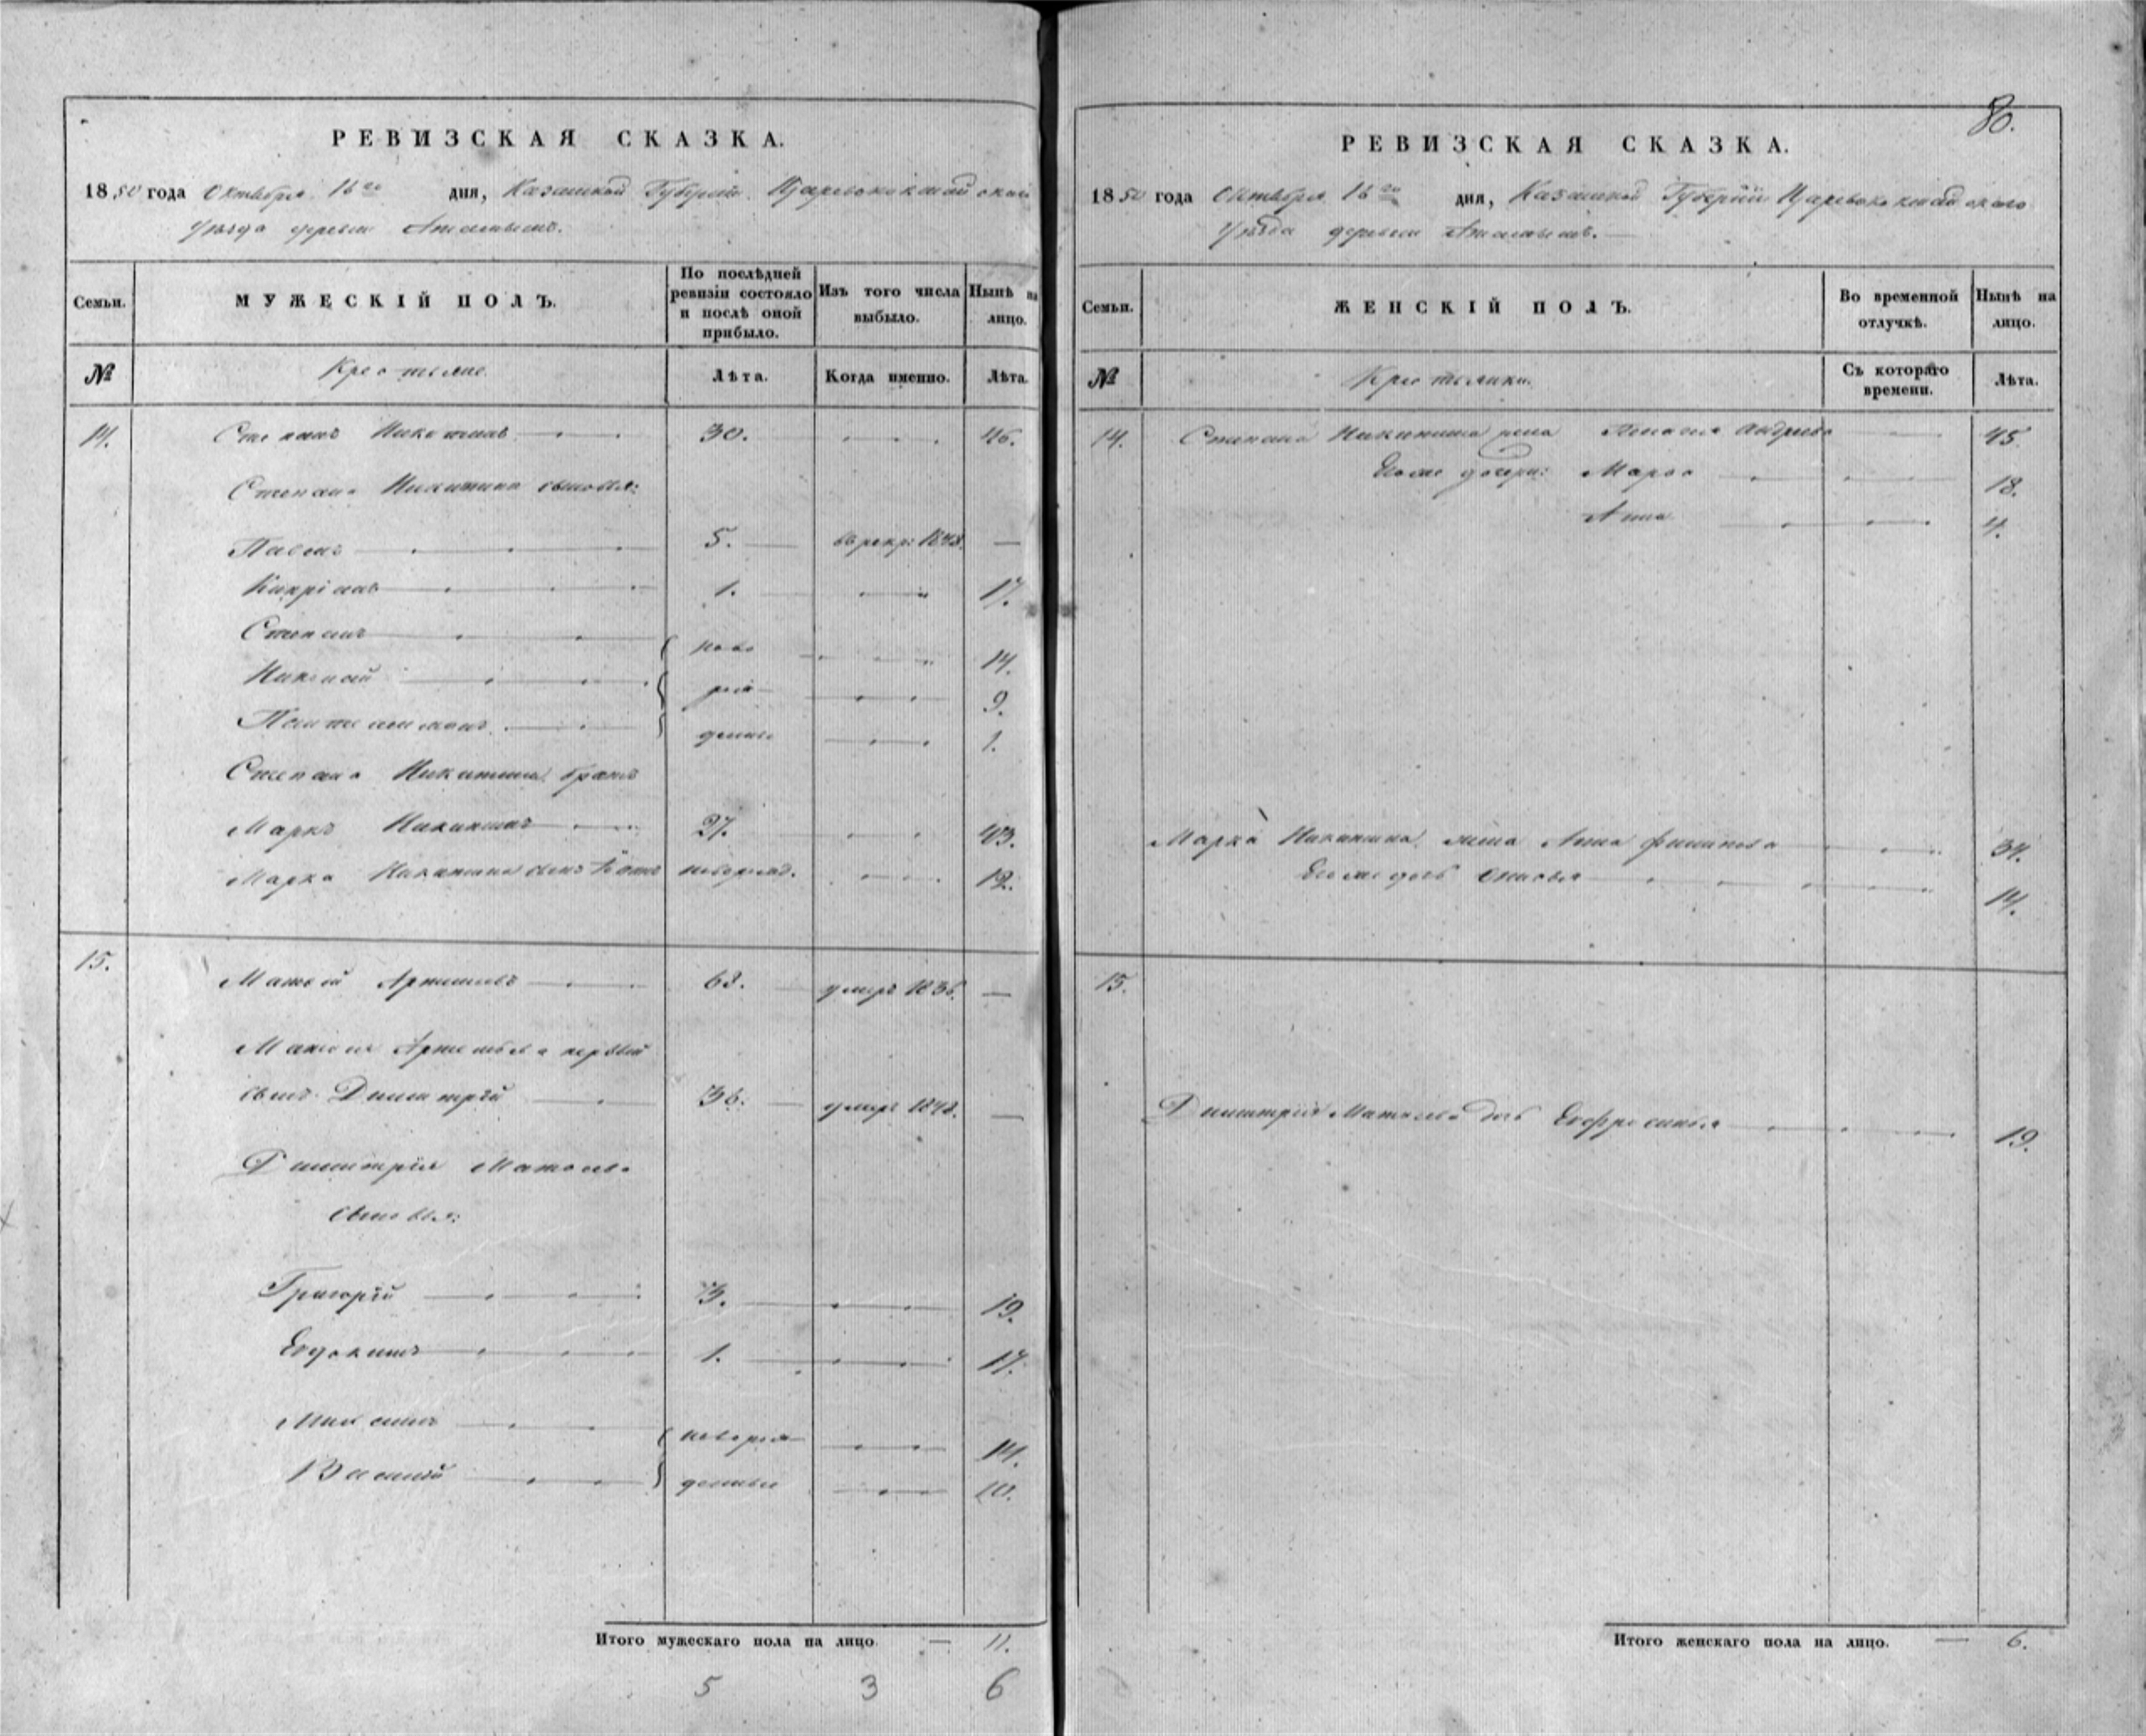 РЕВИЗСКАЯ СКАЗКА.
1850 года Октября 16го дня, Казанской Губернiи Царевококшайской
Уѣзда деревни
Семьи.
МУЖЕСКІЙ ПОЛЪ.
По послѣдней ревизіи состояло и послѣ оной прибыло.
Изъ того числа выбыло.
Нынѣ на лицо.
№
Лѣта.
Когда именно.
Лѣта.
14. Степанъ Никитинъ 30. 46.
Степана Никитина сыновья:
Павелъ 5. въ рекр: 1848. —
1. 17.
Степанъ ново 14.
Николай рож 9.
Пантелеймонъ денные 1.
Степана Никитина братъ
Маркъ Никитинъ 27. 43.
Марка Никитина сынъ новорожд. 12.
15. Матвей Артемьевъ 62. умеръ 1836. —
Матвея Артемьева первый
сынъ Димитрій 36. умеръ 1848. —
Димитрія Матвеева
сыновья:
Григорій 3. 19.
Евдокимъ 1. 17.
новорож 14.
Василій денные 10.
Итого мужескаго пола на лицо. — 11.
5 3 6
80.
РЕВИЗСКАЯ СКАЗКА.
1850 года Октября 16го дня, Казанской Губерніи Царевококшайскаго
Уѣзда деревни
Семьи.
ЖЕНСКІЙ ПОЛЪ.
Во временной отлучкѣ.
Нынѣ на лицо.
№
Съ котораго времени.
Лѣта.
14. Степана Никитина жена Андреева 45.
дочери: Марфа 18.
Анна 4.
Марка Никитина жена Анна Филипова 34.
дочь 14.
15.
Димитрія Матвеева дочь Евфросинья 19.
Итого женскаго пола на лицо. — 6.